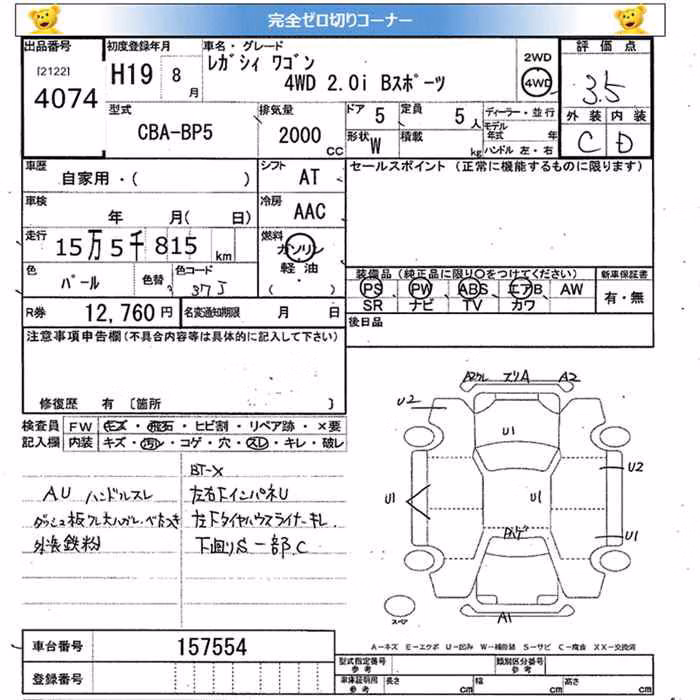 完全ゼロ切りコーナー
出品番号
[2122]
4074
初度登録年月
H19 8月
車名・グレード
レガシィ ワゴン
4WD 2.0i Bスポーツ
2WD
4WD
評価点
3.5
外装 内装
C D
型式
CBA-BP5
排気量
2000 cc
ドア 5
定員 5人
形状 W
積載 kg
ディーラー・並行
モデル年式 年
ハンドル 左・右
車歴
自家用・( )
シフト
AT
セールスポイント (正常に機能するものに限ります)
車検
年 月( 日)
冷房
AAC
走行
15万5千815 km
燃料
ガソリン
軽油
( ・ )
色
パール
色替
色コード
37J
装備品(純正品に限り○をつけてください)
PS PW ABS エアB AW
SR ナビ TV カワ
新車保証書
有・無
R券
12,760円
名変通知期限 月 日
後日品
注意事項申告欄(不具合内容等は具体的に記入して下さい)
修復歴 有 〔箇所 〕
検査員記入欄
FW キズ・飛石・ヒビ割・リペア跡・×要
内装 キズ・汚レ・コゲ・穴・スレ・キレ・破レ
BT-X
AU ハンドルスレ
左右FインパネU
左Fタイヤハウスライナーキレ
外装鉄粉
下廻りS 一部C
A2ワレ スリA A2
U2
U1
U2
U1
U1
U1
ハゲ
A1
スペア
車台番号
157554
登録番号
A-キズ E-エクボ U-凹み W-補修跡 S-サビ C-腐食 XX-交換済
型式指定番号
参考
類別区分番号
参考
車庫証明用
参考
長さ cm
幅 cm
高さ cm